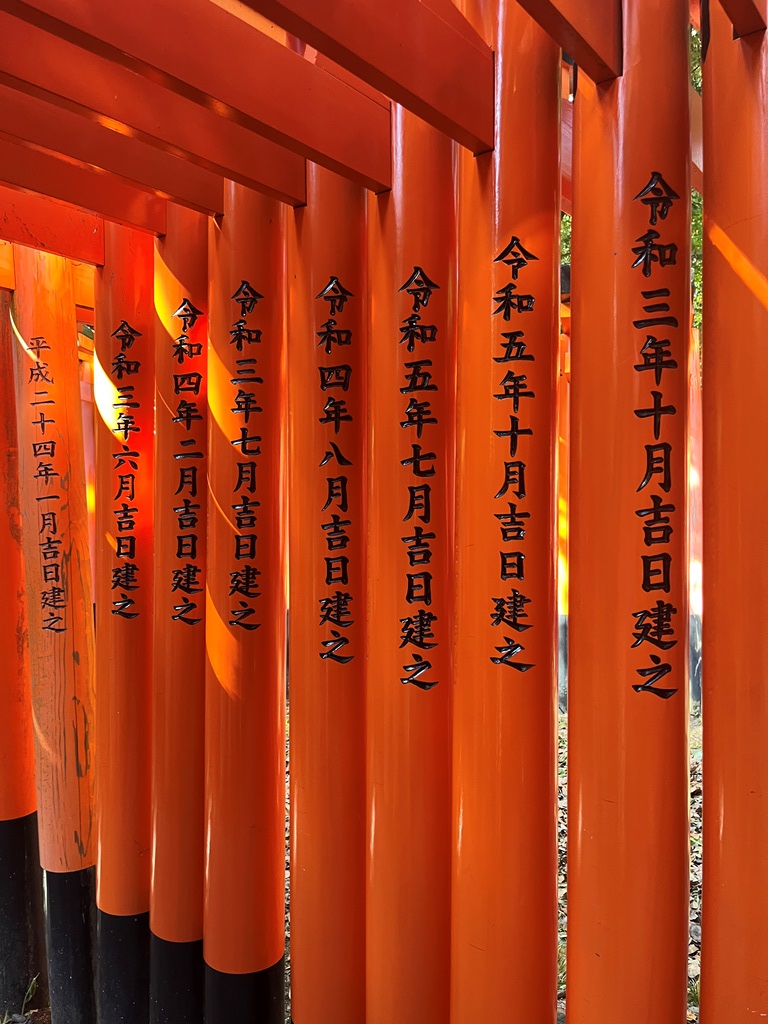 令和三年十月吉日建之
令和五年十月吉日建之
令和五年七月吉日建之
令和四年八月吉日建之
令和三年七月吉日建之
令和四年二月吉日建之
令和三年六月吉日建之
平成二十四年一月吉日建之